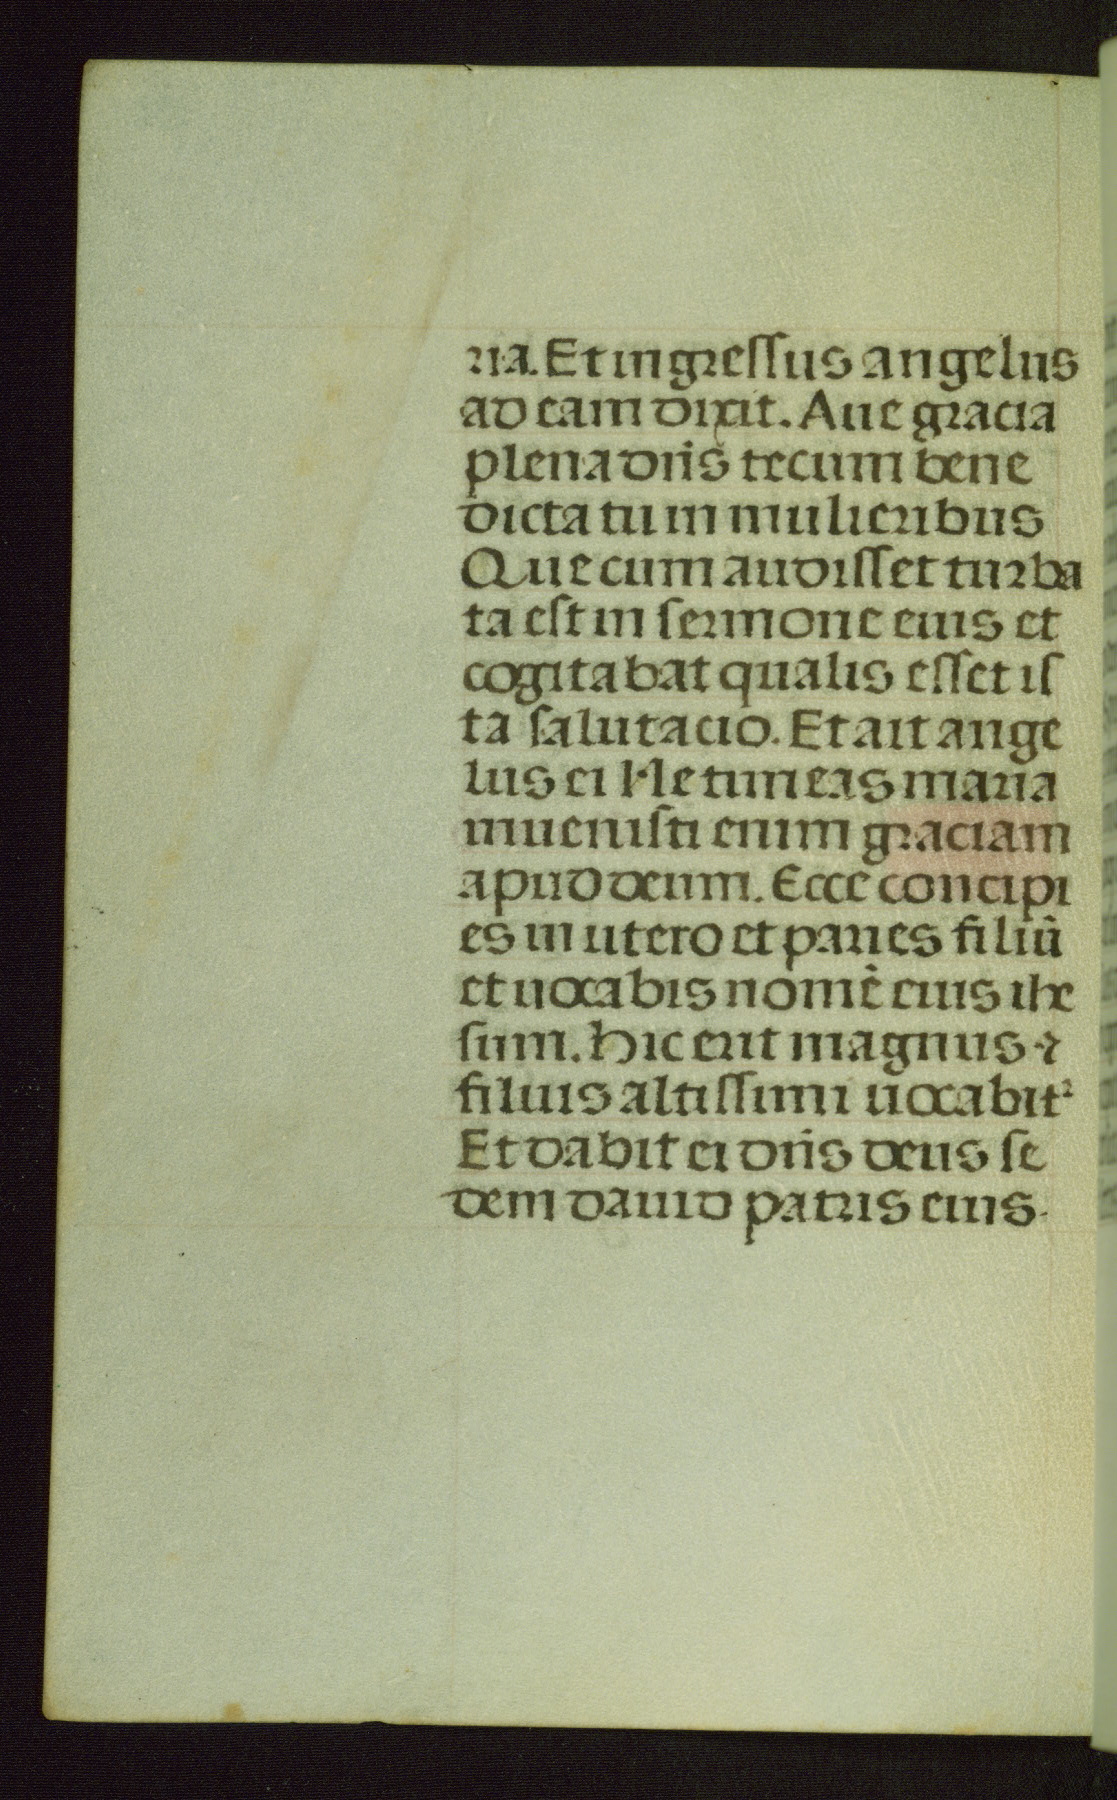 ria. Et ingressus angelus
ad eam dixit. Aue gracia
plena dn̄s tecum bene
dicta tu in mulieribus
Que cum audisset turba
ta est in sermone eius et
cogitabat qualis esset is
ta salutacio. Et ait ange
lus ei Ne timeas maria
inuenisti enim graciam
apud deum. Ecce concipi
es in utero et paries filiū
et uocabis nomē eius ihe
sum. Hic erit magnus ⁊
filius altissimi uocabit²
Et dabit ei dn̄s deus se
dem dauid patris eius.